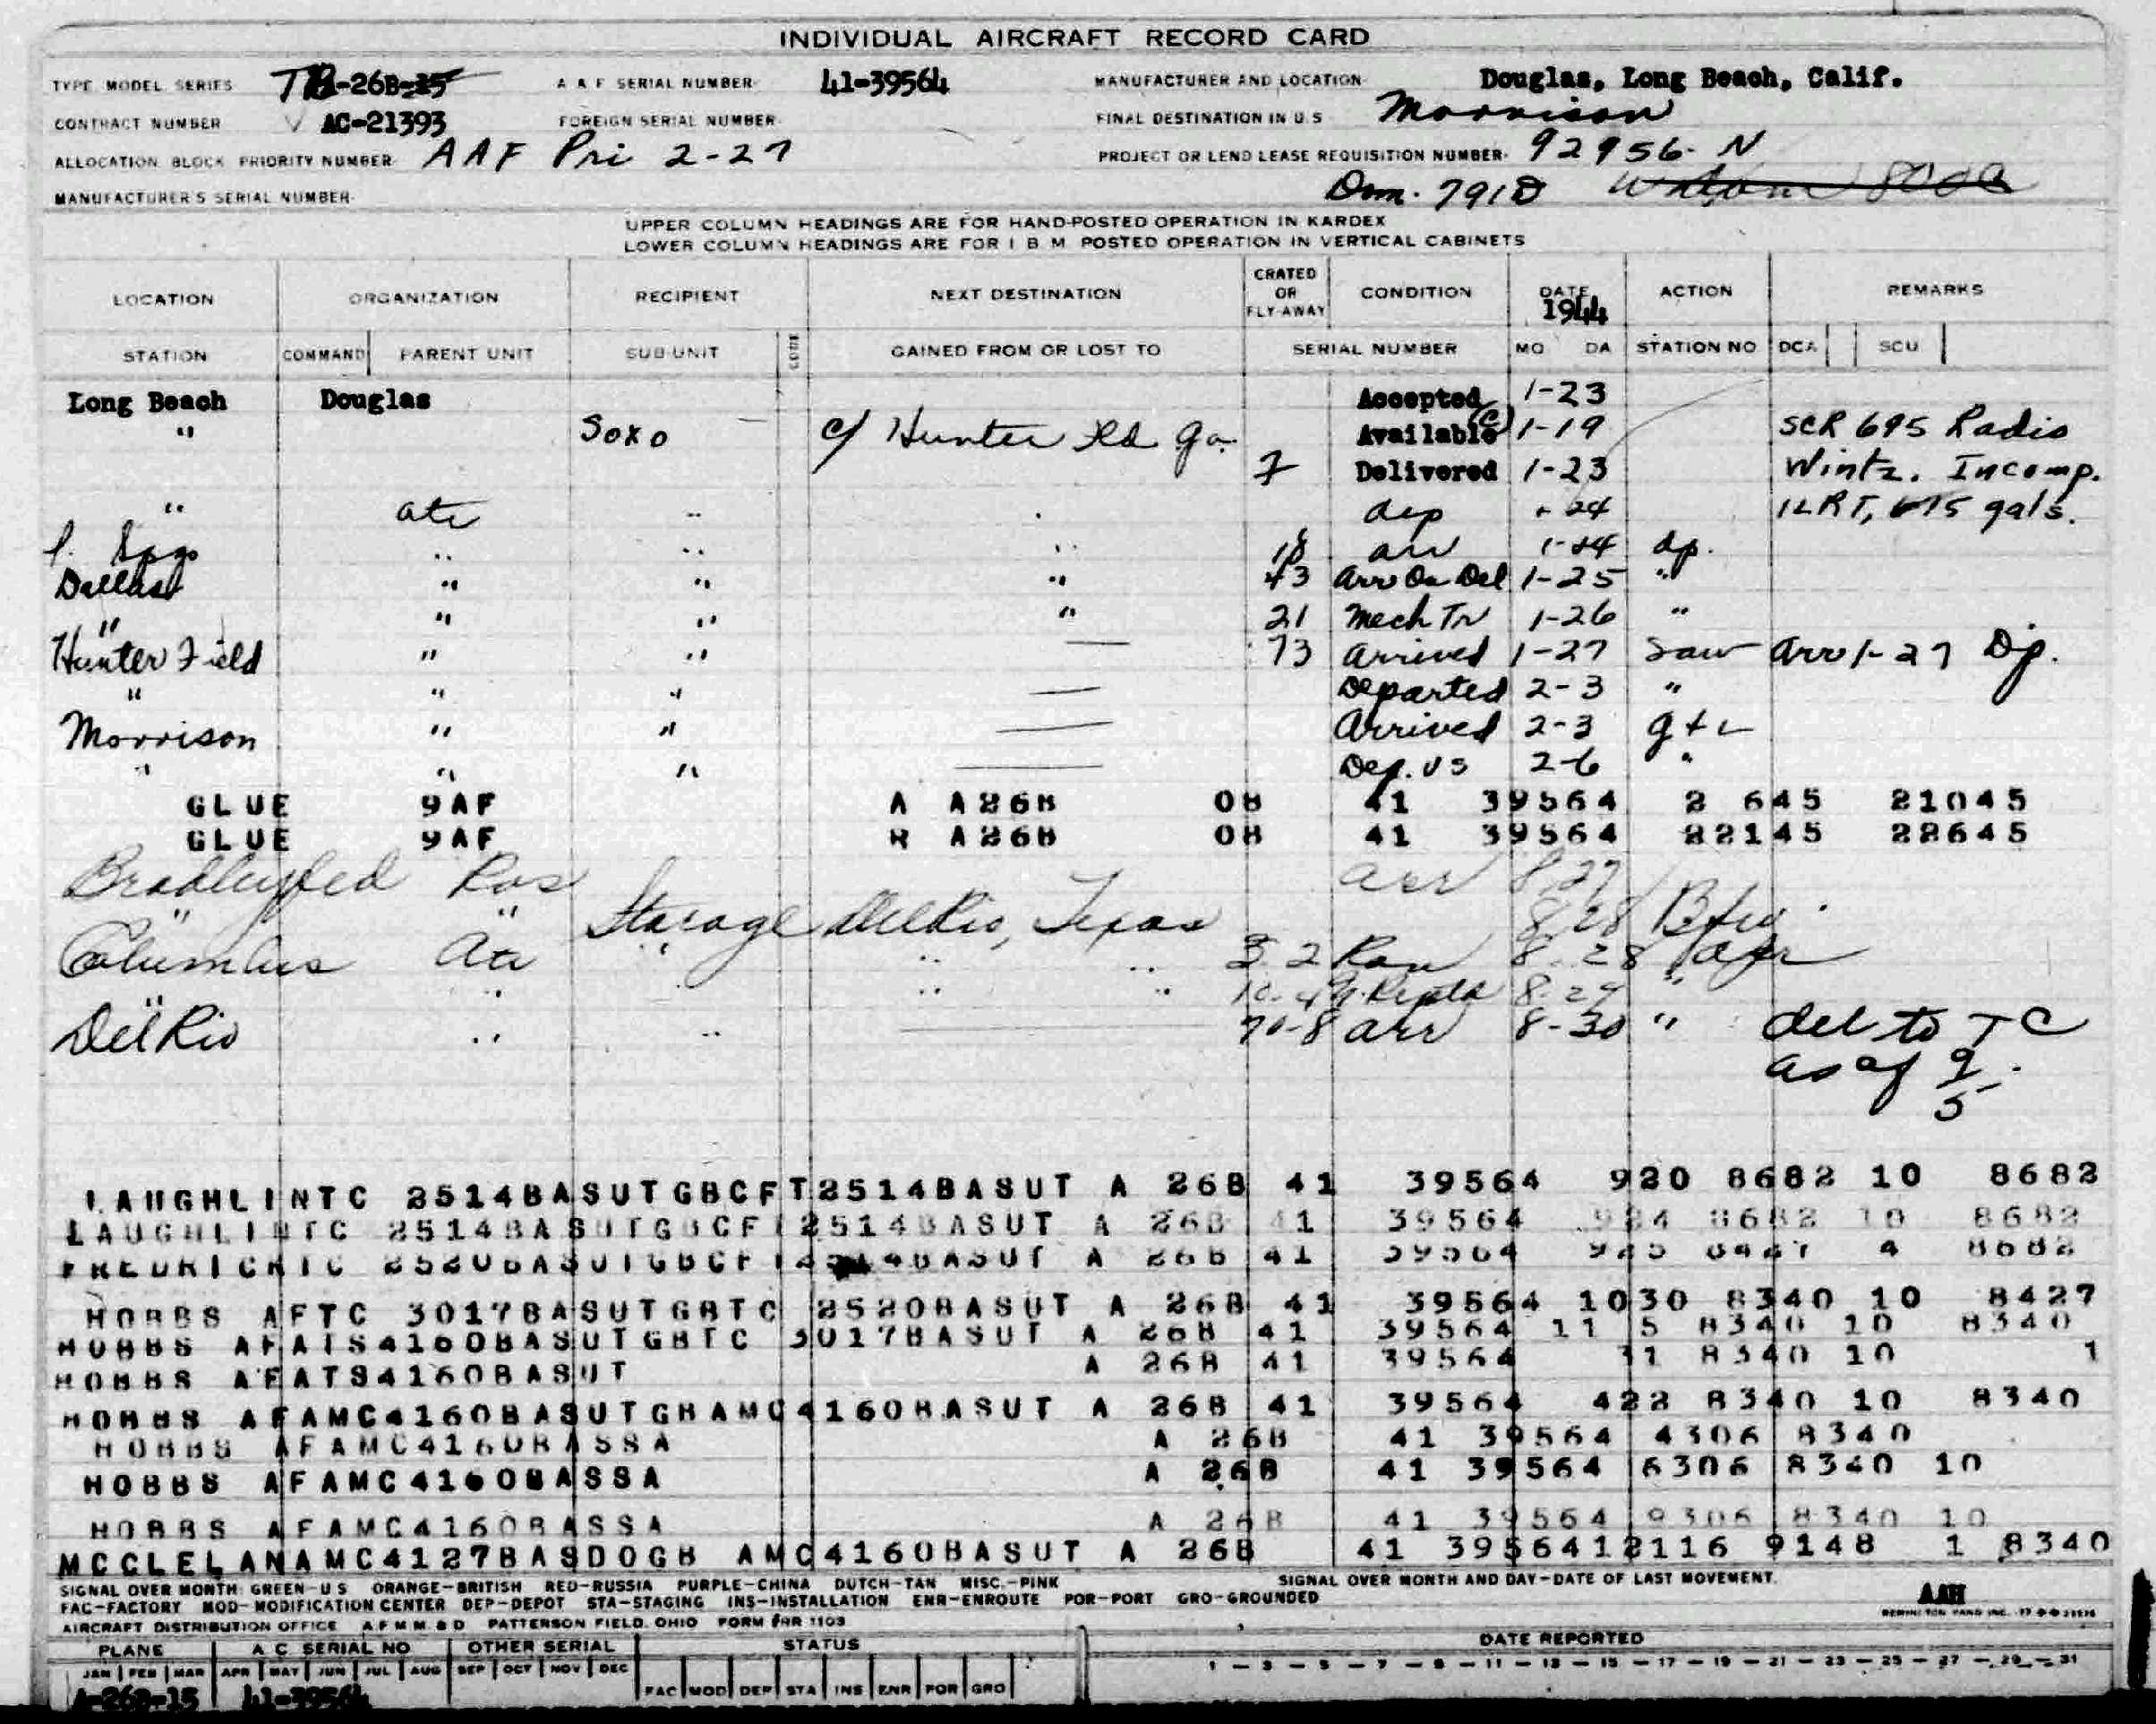 INDIVIDUAL AIRCRAFT RECORD CARD
TYPE MODEL SERIES TB-26B-15 A A F SERIAL NUMBER 41-39564 MANUFACTURER AND LOCATION Douglas, Long Beach, Calif.
CONTRACT NUMBER AC-21393 FOREIGN SERIAL NUMBER FINAL DESTINATION IN U.S Morrison
ALLOCATION BLOCK PRIORITY NUMBER AAF Pri 2-27 PROJECT OR LEND LEASE REQUISITION NUMBER 92956-N
MANUFACTURER'S SERIAL NUMBER Dom. 791D
UPPER COLUMN HEADINGS ARE FOR HAND-POSTED OPERATION IN KARDEX
LOWER COLUMN HEADINGS ARE FOR I B M POSTED OPERATION IN VERTICAL CABINETS
LOCATION ORGANIZATION RECIPIENT NEXT DESTINATION CRATED OR FLY-AWAY CONDITION DATE 1944 ACTION REMARKS
STATION COMMAND PARENT UNIT SUB-UNIT CODE GAINED FROM OR LOST TO SERIAL NUMBER MO DA STATION NO DCA SCU
Long Beach Douglas Accepted 1-23
" Soxo c/ Hunter Fld Ga. Available (C) 1-19 SCR 695 Radio
7 Delivered 1-23 Wintz. Incomp.
" atc " dep 24 1LRT, 675 gals.
P. Spgs " " " 18 arr 1-24 dp.
Dallas " " " 43 Arr On Del 1-25 "
" " " " 21 Mech Tr 1-26 "
Hunter Field " " — 73 Arrived 1-27 Saw Arr 1-27 Dp.
" " " — Departed 2-3 "
Morrison " " — Arrived 2-3 g+L
" " " — Dep. US 2-6 "
GLUE 9AF A A26B 08 41 39564 2 645 21045
GLUE 9AF R A26B 08 41 39564 82145 82645
Bradley Fld arr 8.27
" " Storage Del Rio, Texas 8.28
Columbus " " " 3.2 Ron 8.28
" " " " 8.29 "
Del Rio " " — 70-8 arr 8-30 " del to TC
as of 9/5
LAUGHLINTC 2514BASUTGBCFT2514BASUT A 26B 41 39564 920 8682 10 8682
LAUGHLINTC 2514BASUTGBCFT2514BASUT A 26B 41 39564 924 8682 10 8682
FREDRICKTC 2520BASUTGBCFT2514BASUT A 26B 41 39564 925 8427 4 8682
HOBBS AFTC 3017BASUTGBTC 2520BASUT A 26B 41 39564 1030 8340 10 8427
HOBBS AFATS4160BASUTGBTC 3017BASUT A 26B 41 39564 11 5 8340 10 8340
HOBBS AFATS4160BASUT A 26B 41 39564 31 8340 10 1
HOBBS AFAMC4160BASUTGBAMC4160BASUT A 26B 41 39564 422 8340 10 8340
HOBBS AFAMC4160BASSA A 26B 41 39564 4306 8340
HOBBS AFAMC4160BASSA A 26B 41 39564 6306 8340 10
HOBBS AFAMC4160BASSA A 26B 41 39564 9306 8340 10
MCCLELANAMC4127BASDOGB AMC4160BASUT A 26B 41 3956412116 9148 1 8340
SIGNAL OVER MONTH: GREEN-U S ORANGE-BRITISH RED-RUSSIA PURPLE-CHINA DUTCH-TAN MISC.-PINK SIGNAL OVER MONTH AND DAY-DATE OF LAST MOVEMENT.
FAC-FACTORY MOD-MODIFICATION CENTER DEP-DEPOT STA-STAGING INS-INSTALLATION ENR-ENROUTE POR-PORT GRO-GROUNDED AAH
AIRCRAFT DISTRIBUTION OFFICE A F M M & D PATTERSON FIELD, OHIO FORM FRR 1103
PLANE A C SERIAL NO OTHER SERIAL STATUS DATE REPORTED
JAN FEB MAR APR MAY JUN JUL AUG SEP OCT NOV DEC FAC MOD DEP STA INS ENR POR GRO 1 — 3 — 5 — 7 — 9 — 11 — 13 — 15 — 17 — 19 — 21 — 23 — 25 — 27 — 29 — 31
A-26B-15 41-39564